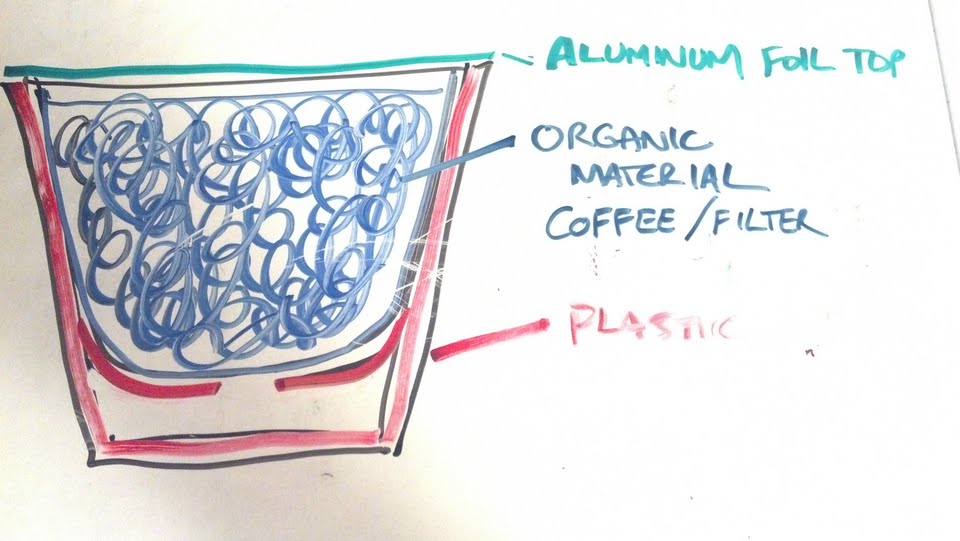 ALUMINUM FOIL TOP
ORGANIC
MATERIAL
COFFEE/FILTER
PLASTIC